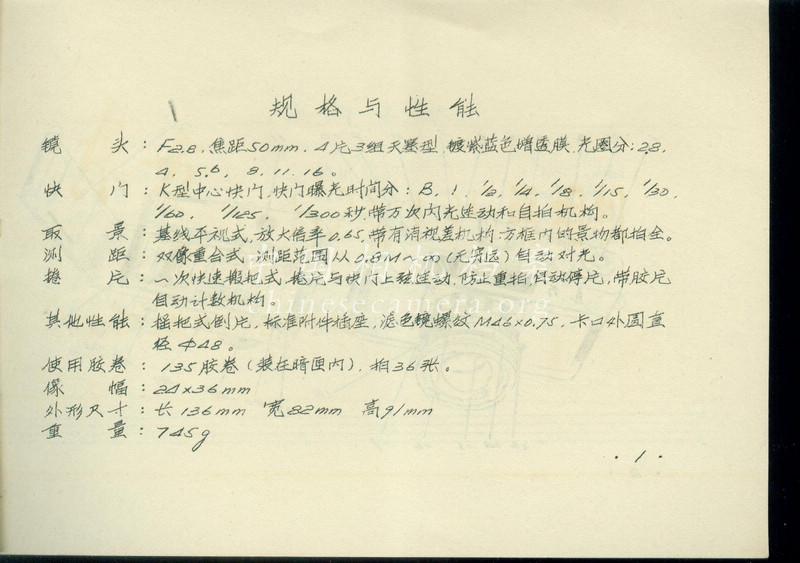 规格与性能
镜 头：F2.8，焦距50mm，4片3组天塞型，镀紫蓝色增透膜，光圈分：2.8，
4，5.6，8，11，16。
快 门：K型中心快门，快门曝光时间分：B，1，1/2，1/4，1/8，1/15，1/30，
1/60，1/125，1/300秒，带万次闪光连动和自拍机构。
取 景：基线平视式，放大倍率0.65，带有消视差机构，方框内的景物都拍全。
测 距：双像重合式，测距范围从0.8M～∞(无穷远)自动对光。
捲 片：一次快速搬把式，捲片与快门上弦连动，防止重拍，自动停片，带胶片
自动计数机构。
其他性能：摇把式倒片，标准附件插座，滤色镜螺纹M46×0.75，卡口外圆直
径Φ48。
使用胶卷：135胶卷(装在暗匣内)，拍36张。
像 幅：24×36mm
外形尺寸：长136mm 宽82mm 高91mm
重 量：745g
·1·
chinesecamera.org